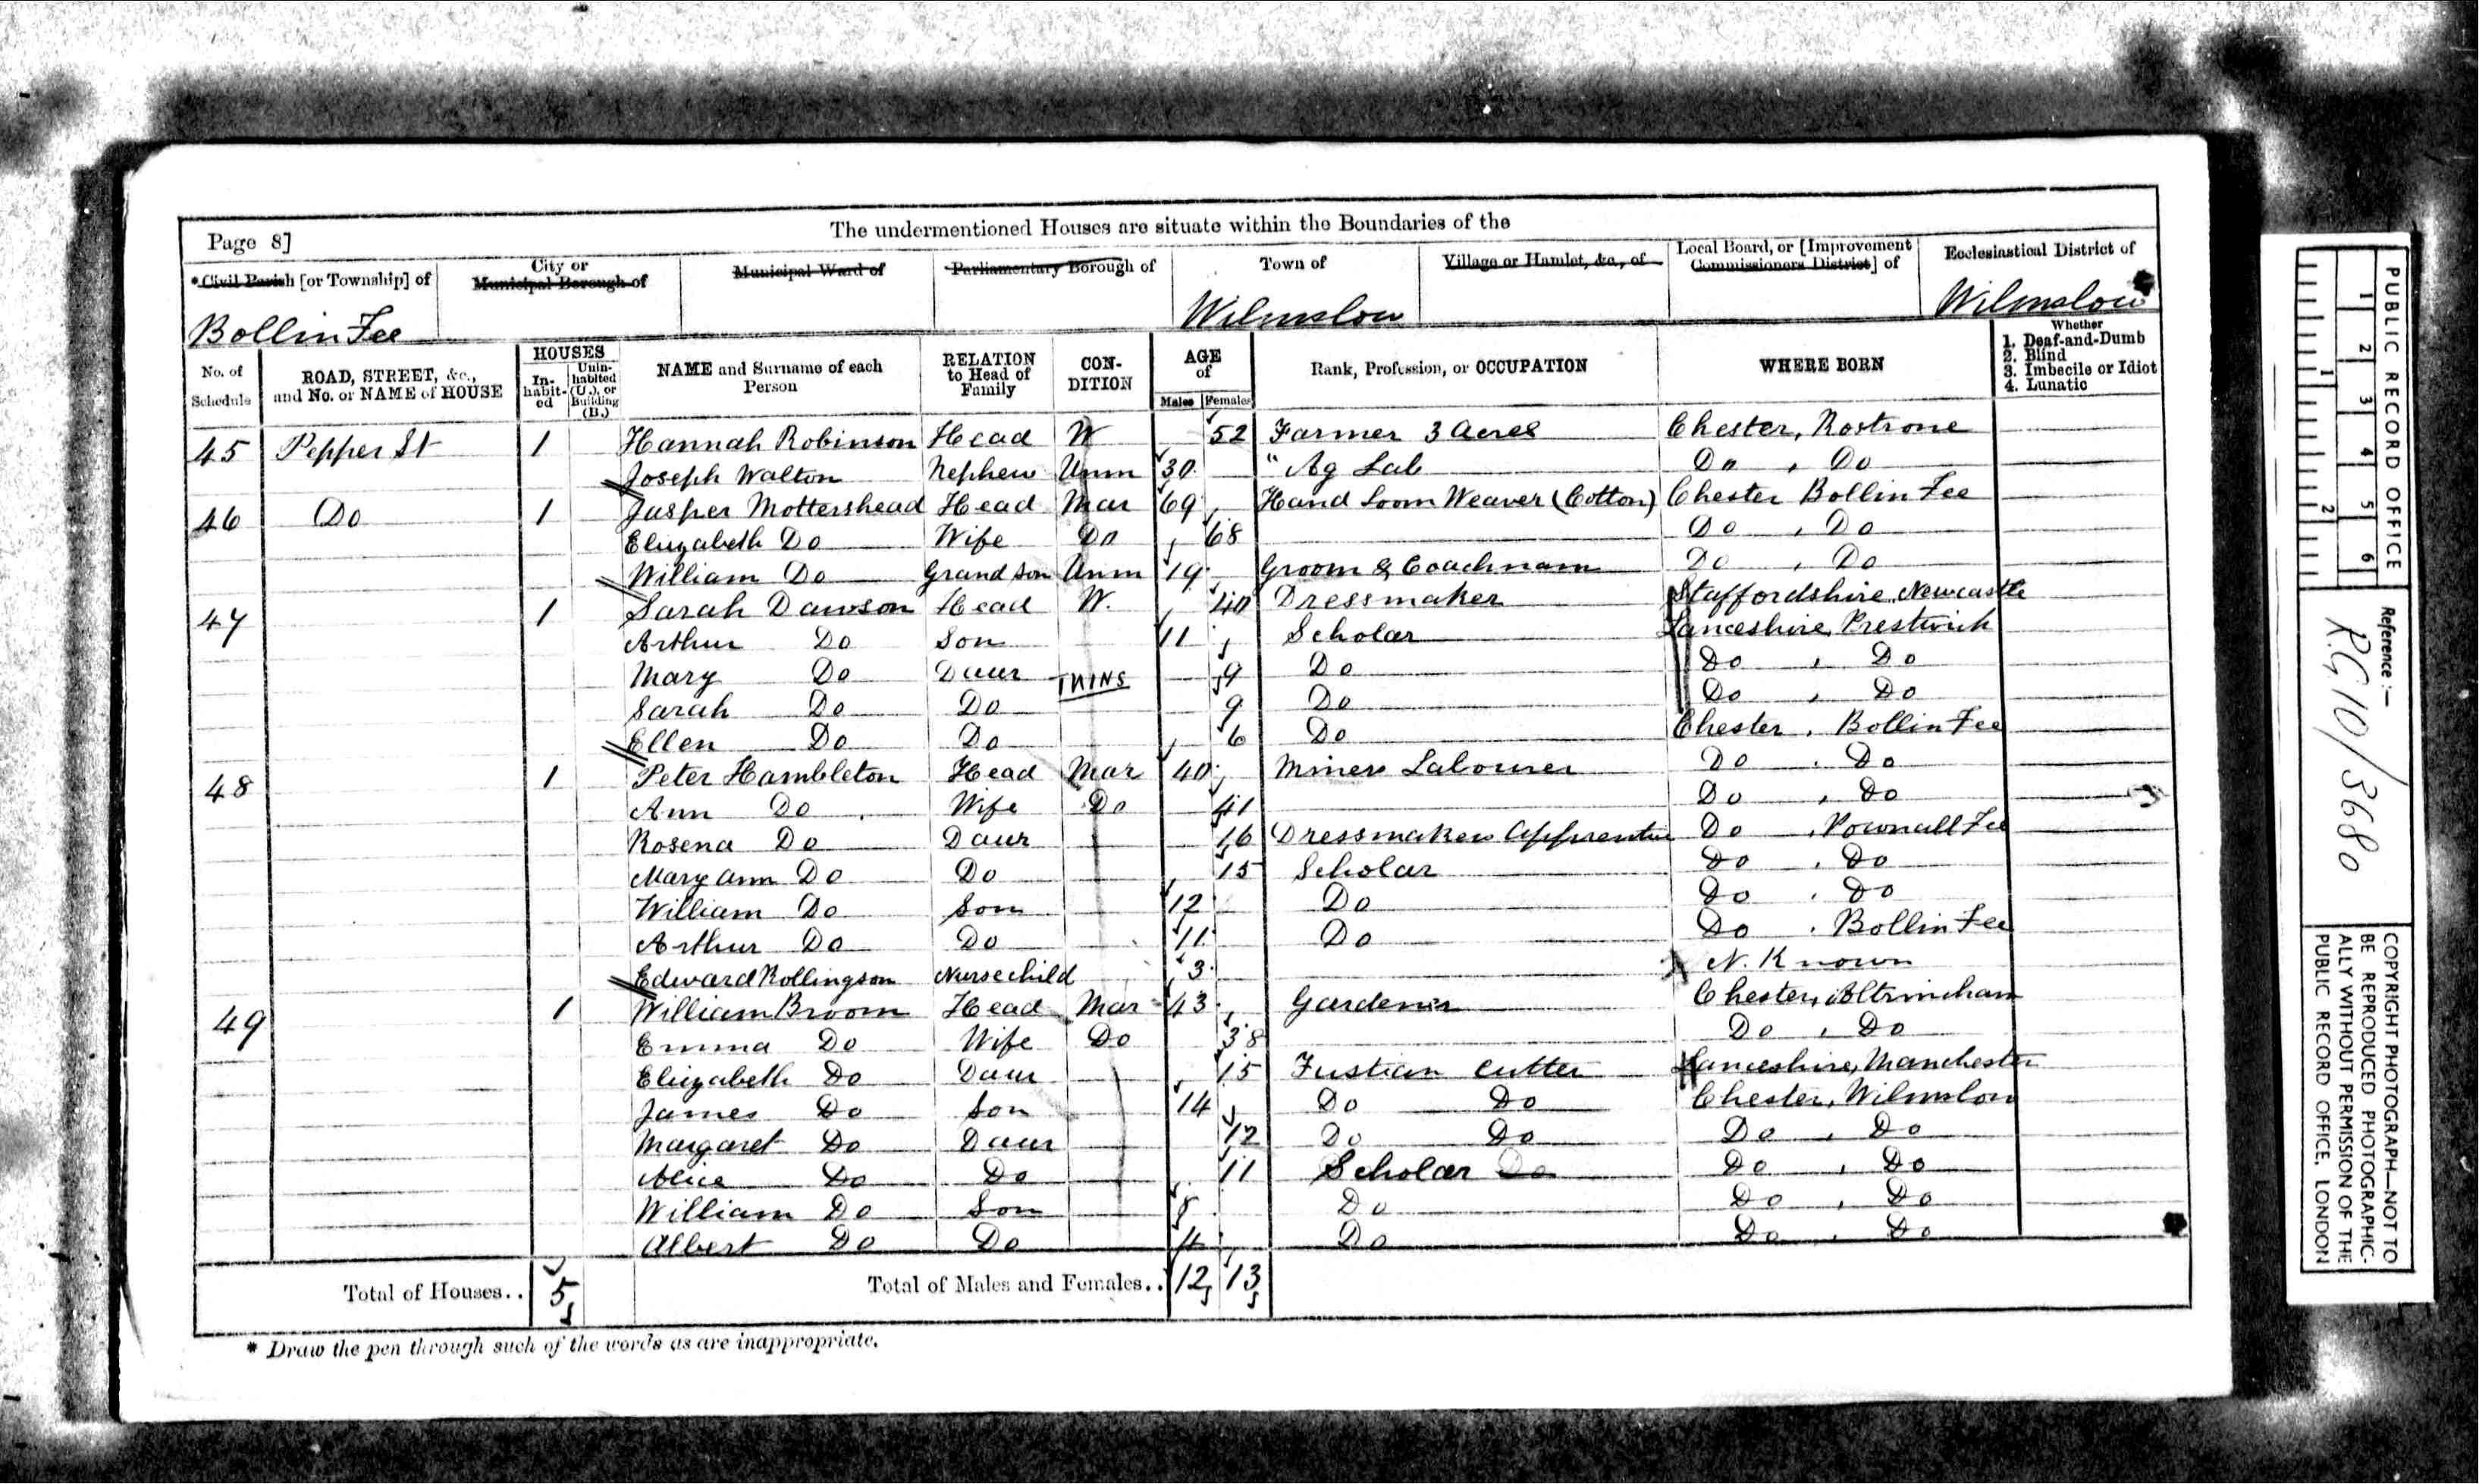 The undermentioned Houses are situate within the Boundaries of the
Page 8]
*Civil Parish [or Township] of
City or Municipal Borough of
Municipal Ward of
Parliamentary Borough of
Town of
Village or Hamlet, &c., of
Local Board, or [Improvement Commissioners District] of
Ecclesiastical District of
Bollin Fee
Wilmslow
Wilmslow
No. of Schedule
ROAD, STREET, &c., and No. or NAME of HOUSE
HOUSES
In-habit-ed
Unin-habited (U.), or Building (B.)
NAME and Surname of each Person
RELATION to Head of Family
CON-DITION
AGE of
Males
Females
Rank, Profession, or OCCUPATION
WHERE BORN
Whether
1. Deaf-and-Dumb
2. Blind
3. Imbecile or Idiot
4. Lunatic
45 Pepper St 1 Hannah Robinson Head W 52 Farmer 3 Acres Chester, Rostrone
Joseph Walton Nephew Unm 30 " Ag Lab Do , Do
46 Do 1 Jasper Mottershead Head Mar 69 Hand Loom Weaver (Cotton) Chester Bollin Fee
Elizabeth Do Wife Do 68 Do , Do
William Do Grand son Unm 19 Groom & Coachman Do , Do
47 1 Sarah Dawson Head W. 40 Dressmaker Staffordshire, Newcastle
Arthur Do Son 11 Scholar Lanceshire, Prestwich
Mary Do Daur TWINS 9 Do Do , Do
Sarah Do Do 9 Do Do , Do
Ellen Do Do 6 Do Chester , Bollin Fee
48 1 Peter Hambleton Head Mar 40 Miners Labourer Do , Do
Ann Do Wife Do 41 Do , Do
Rosena Do Daur 16 Dressmaker Apprentice Do , Pownall Fee
Mary ann Do Do 15 Scholar Do , Do
William Do Son 12 Do Do , Do
Arthur Do Do 11 Do Do , Bollin Fee
Edward Rollingson Nursechild 3 N. Known
49 1 William Broom Head Mar 43 Gardener Chester, Altrincham
Emma Do Wife Do 38 Do , Do
Elizabeth Do Daur 15 Fustian Cutter Lanceshire, Manchester
James Do Son 14 Do Do Chester, Wilmslow
Margaret Do Daur 12 Do Do Do , Do
Alice Do Do 11 Scholar Do Do , Do
William Do Son 8 Do Do , Do
Albert Do Do 4 Do Do , Do
Total of Houses.. 5 Total of Males and Females.. 12 13
* Draw the pen through such of the words as are inappropriate.
PUBLIC RECORD OFFICE
1 2 3 4 5 6
1 2
Reference :—
R.G. 10/3680
COPYRIGHT PHOTOGRAPH—NOT TO
BE REPRODUCED PHOTOGRAPHIC-
ALLY WITHOUT PERMISSION OF THE
PUBLIC RECORD OFFICE, LONDON